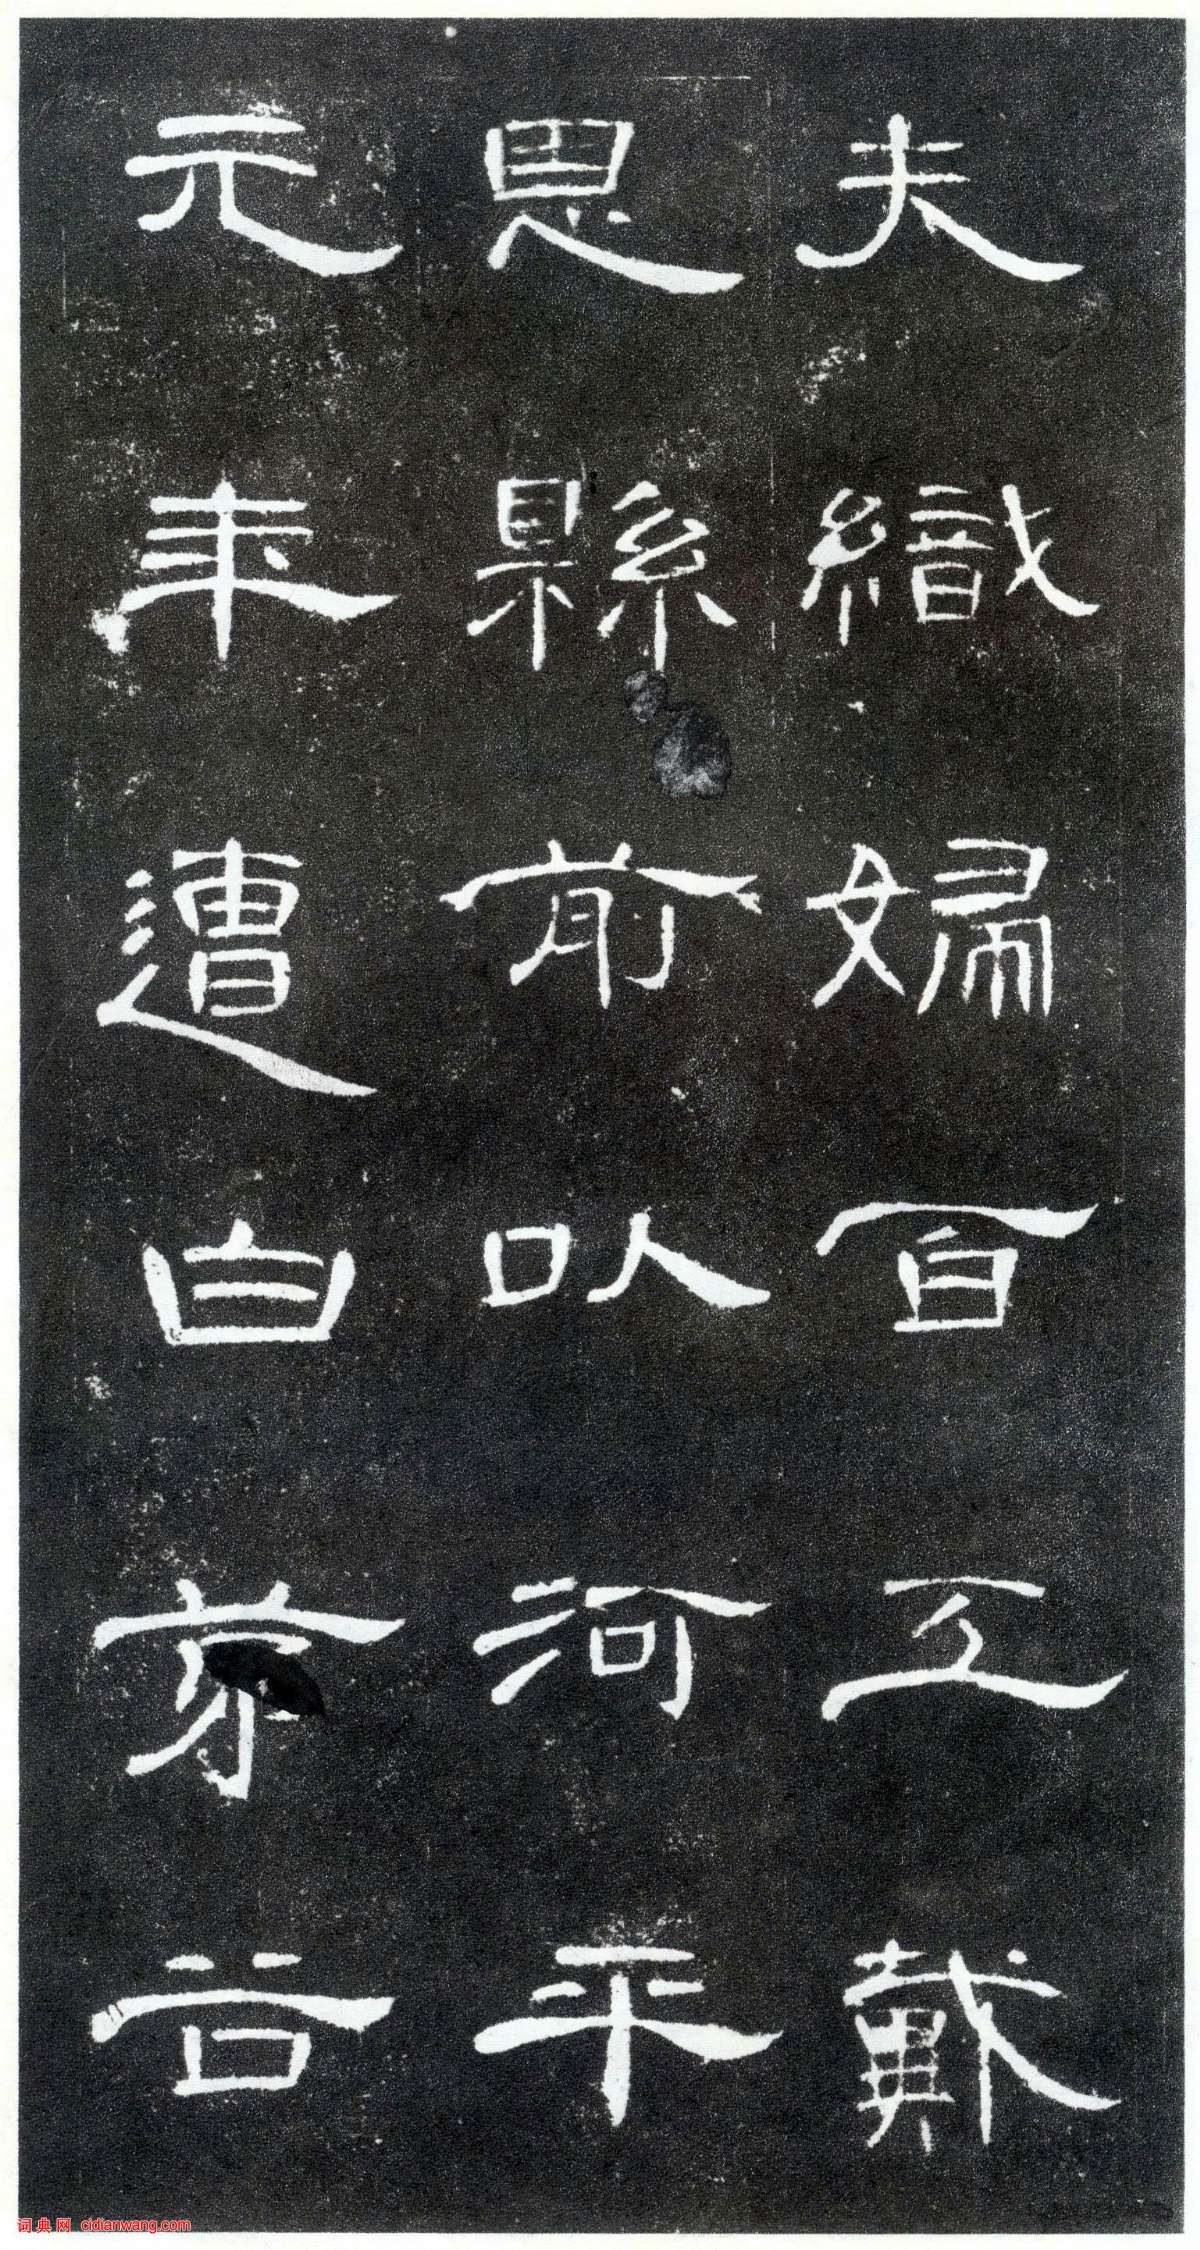 夫織婦百工戴
恩縣前以河平
元年遭白茅谷
词典网 cidianwang.com